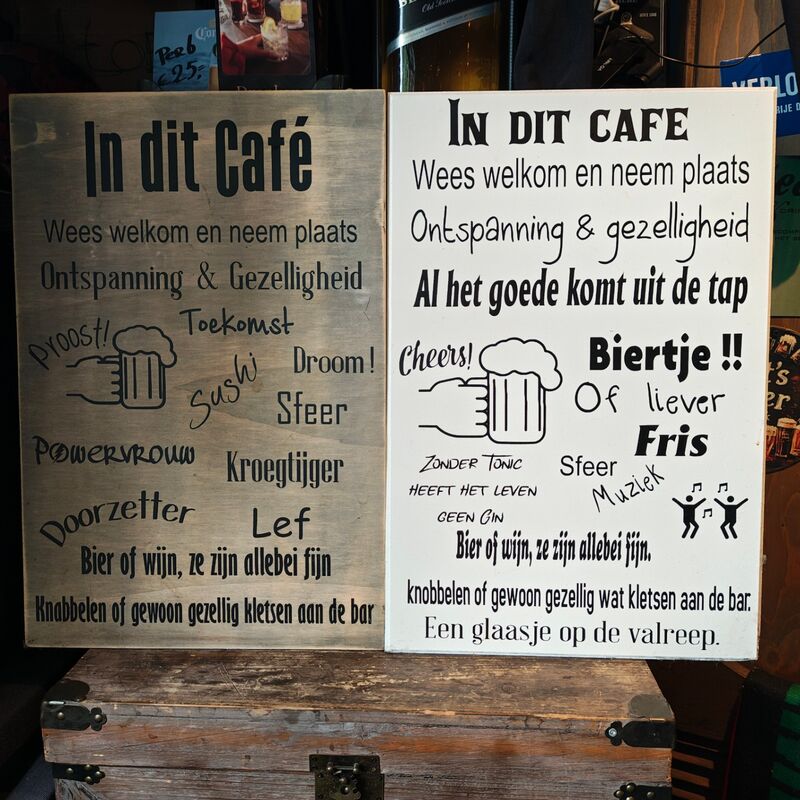 Per 6
€25,-
In dit Café
Wees welkom en neem plaats
Ontspanning & Gezelligheid
Proost!
Toekomst
Droom!
Sushi
Sfeer
Powervrouw
Kroegtijger
Doorzetter
Lef
Bier of wijn, ze zijn allebei fijn
Knabbelen of gewoon gezellig kletsen aan de bar
IN DIT CAFE
Wees welkom en neem plaats
Ontspanning & gezelligheid
Al het goede komt uit de tap
Cheers!
Biertje !!
Of liever
Fris
ZONDER TONIC
HEEFT HET LEVEN
GEEN GIN
Sfeer
Muziek
Bier of wijn, ze zijn allebei fijn.
knobbelen of gewoon gezellig wat kletsen aan de bar.
Een glaasje op de valreep.